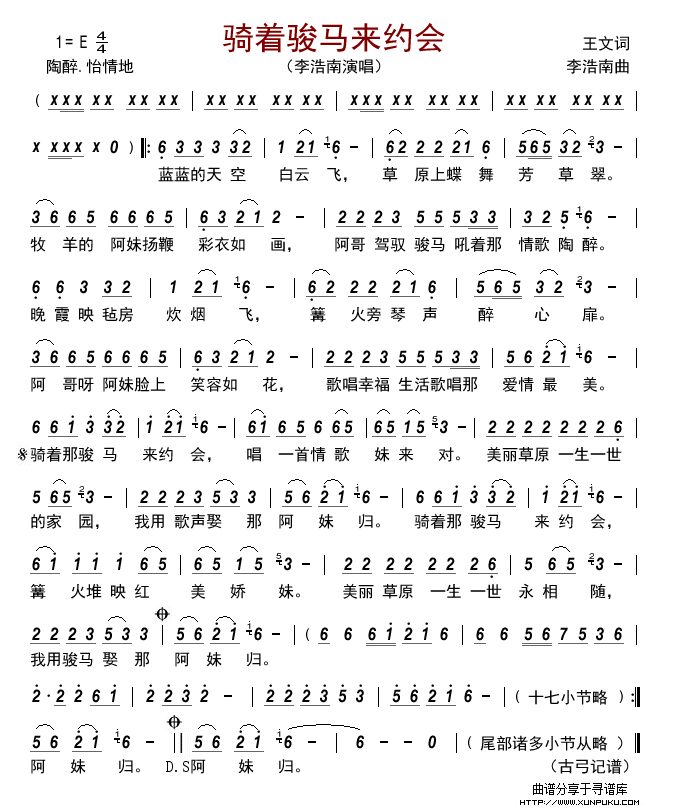 骑着骏马来约会
1= E 4/4
王文词
陶醉.怡情地
（李浩南演唱）
李浩南曲
( xxx xx xx | xx xx xx xx | xxx xx xx xx | xxx xx xx xx |
x xxx x x 0 ) ‖: 6 3 3 3 32 | 1 21 1 6 - | 62 2 2 21 6 | 565 32 2 3 - |
蓝蓝的天 空 白云 飞， 草 原上蝶 舞 芳 草 翠。
36 65 66 65 | 63 21 2 - | 22 23 55 533 | 32 5 1 6 - |
牧 羊的 阿妹扬鞭 彩衣如 画， 阿哥 驾驭 骏马 吼着那 情歌 陶 醉。
6 6 3 32 | 1 21 1 6 - | 62 22 21 6 | 565 32 2 3 - |
晚 霞 映 毡房 炊 烟 飞， 篝 火旁 琴 声 醉 心 扉。
36 65 66 65 | 63 21 2 - | 2223 55 533 | 56 21 1 6 - |
阿 哥呀 阿妹脸上 笑容如 花， 歌唱幸福 生活歌唱那 爱情 最 美。
6 61 3 32 | 1 21 1 6 - | 61 65 6 65 | 65 15 5 3 - | 22 22 22 26 |
※骑着那骏 马 来约 会， 唱 一首情 歌 妹 来 对。 美丽草原 一生一世
5 65 2 3 - | 22 23 533 | 56 21 1 6 - | 6 61 3 32 | 1 21 1 6 - |
的家 园， 我用 歌声娶 那 阿 妹 归。 骑着那 骏马 来 约 会，
61 11 1 65 | 65 15 5 3 - | 22 22 22 26 | 5 65 2 3 - |
篝 火堆 映 红 美 娇 妹。 美丽 草原 一生 一世 永 相 随，
22 23 53 3 | 56 21 1 6 - | ( 6 6 61 21 6 | 6 6 56 7536 |
我用骏马 娶 那 阿 妹 归。
2·2 26 1 | 2 23 2 - | 22 23 5 3 | 56 21 6 - | ( 十七小节略 ) :‖
56 21 1 6 - ‖ 56 21 1 6 - | 6 - - 0 | ( 尾部诸多小节从略 ) ‖
阿 妹 归。 D.S阿 妹 归。 （古弓记谱）
曲谱分享于寻谱库
HTTP://WWW.XUNPUKU.COM